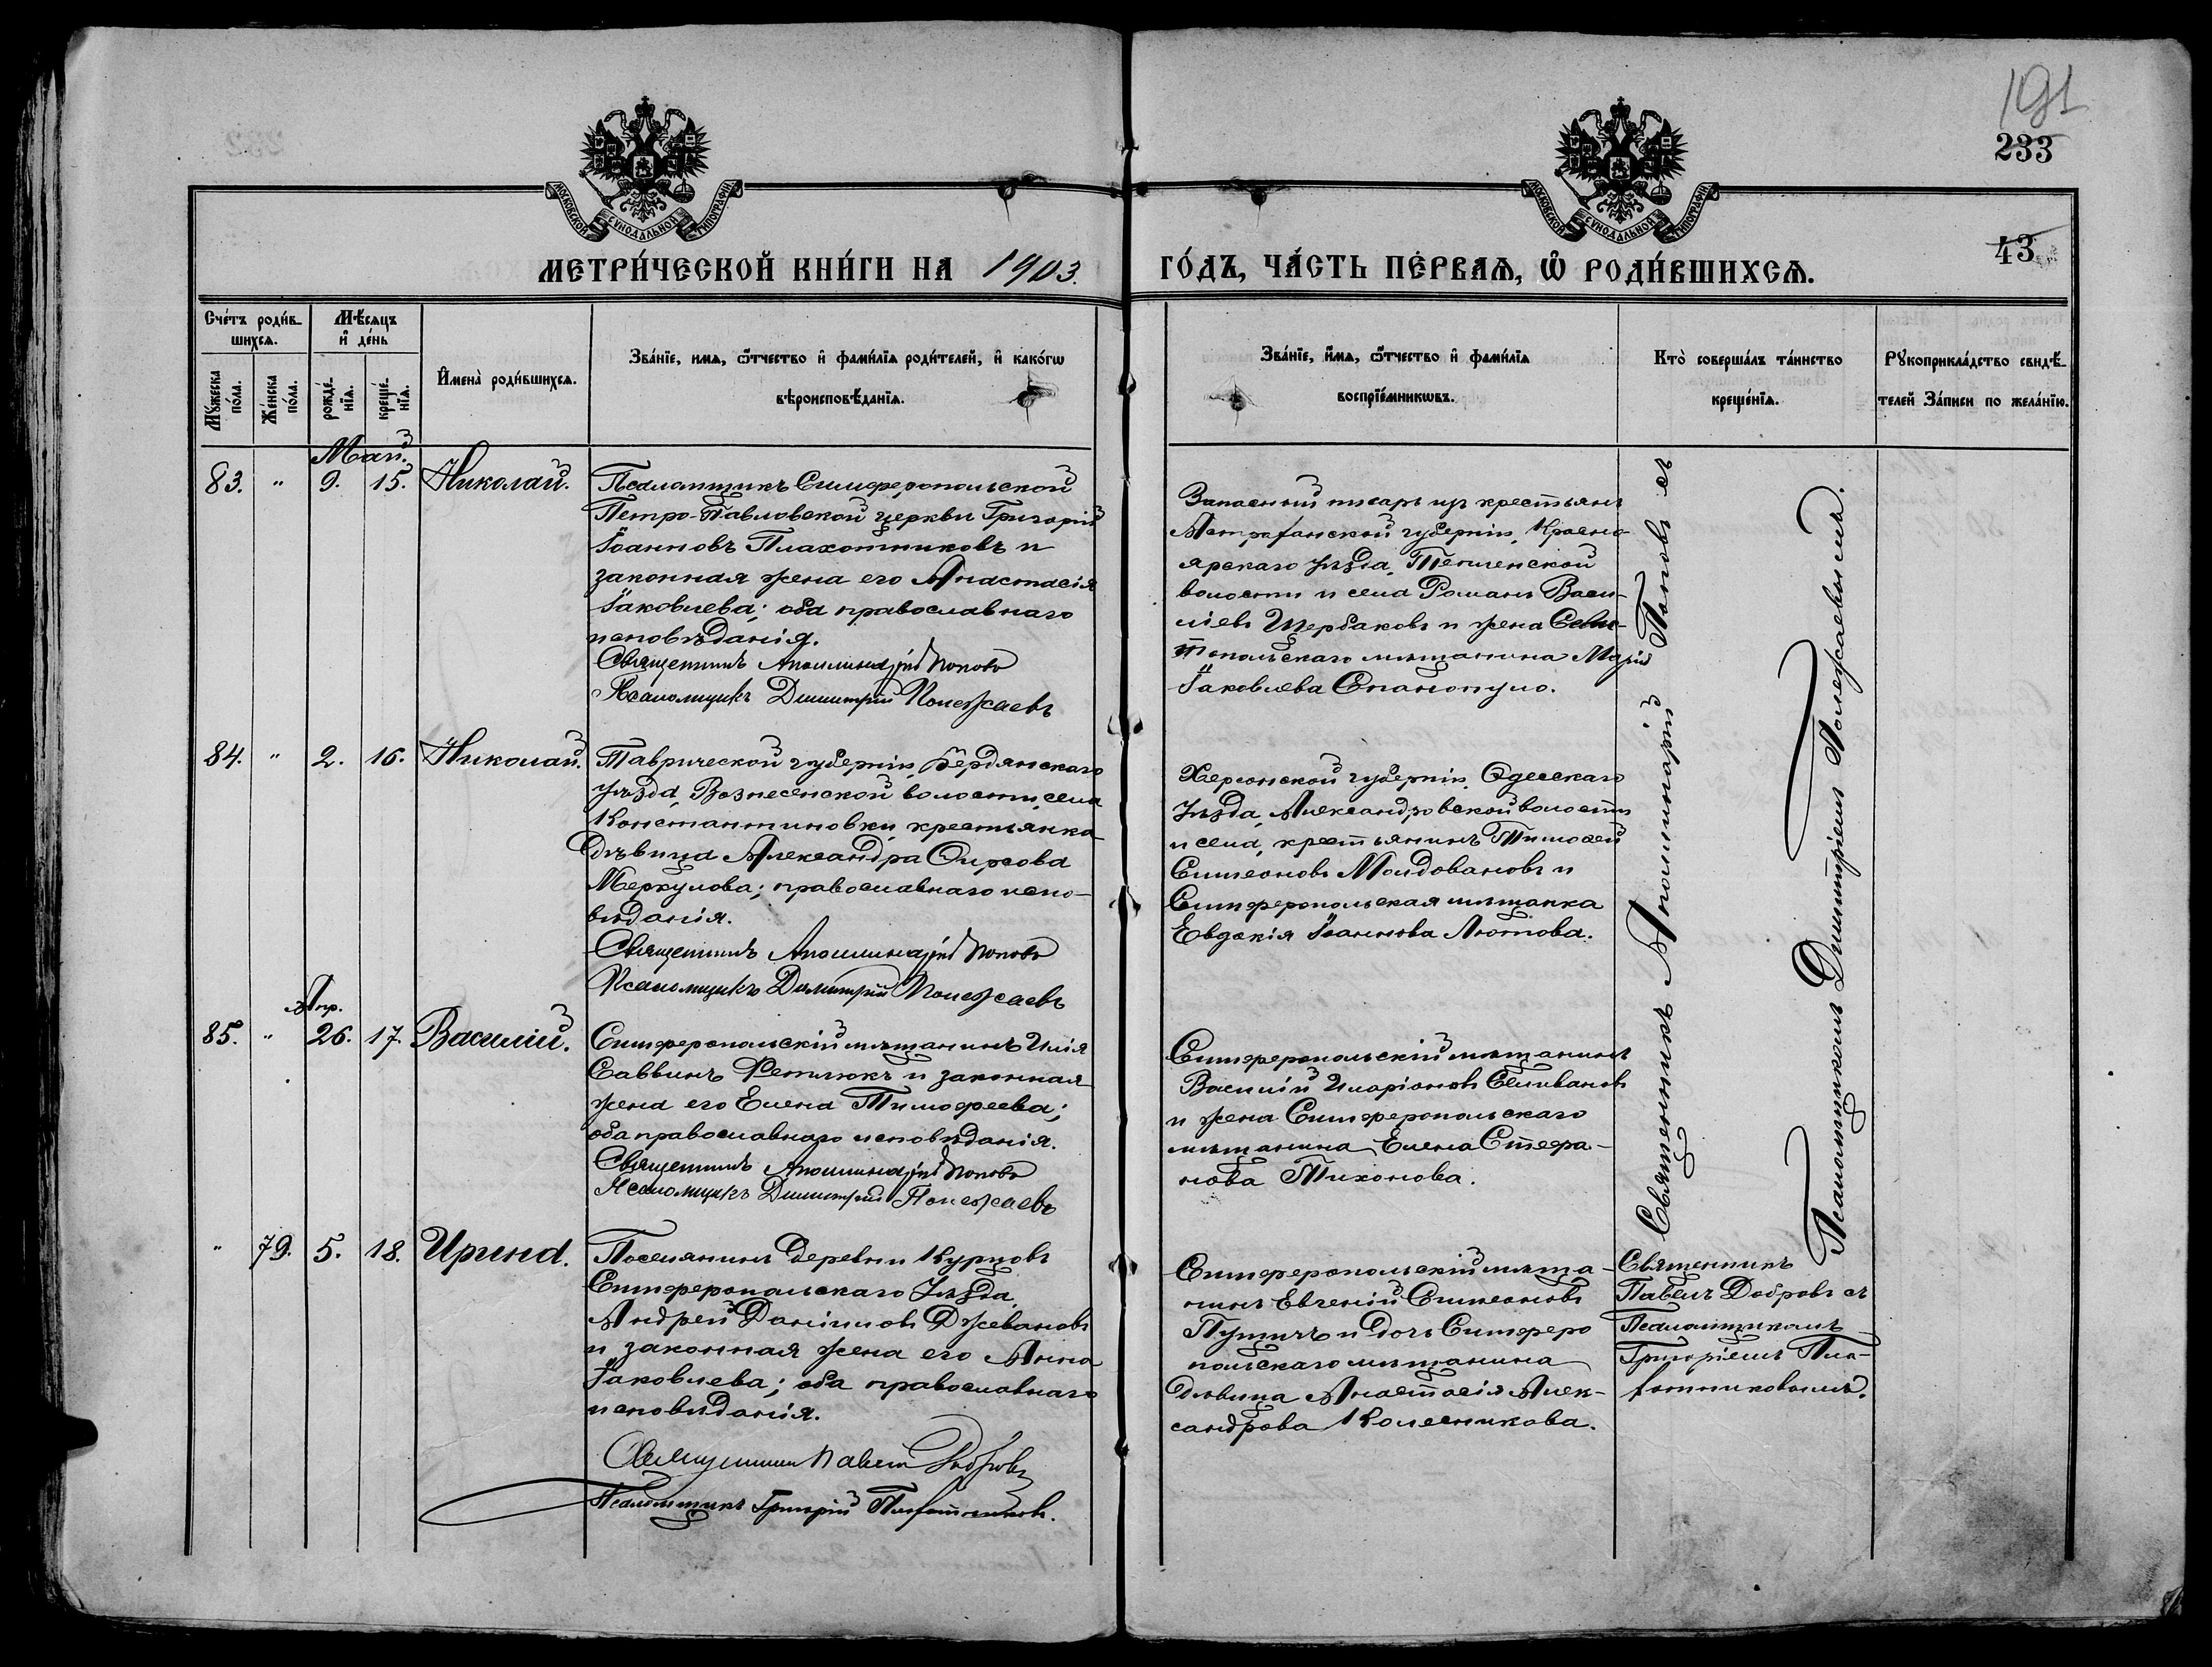 191
233
43
МОСКОВСКОЙ СѴНОДАЛЬНОЙ ТИПОГРАФІИ
МОСКОВСКОЙ СѴНОДАЛЬНОЙ ТИПОГРАФІИ
МЕТРИ́ЧЕСКОЙ КНИ́ГИ НА 1903. ГО́ДЪ, ЧА́СТЬ ПЕ́РВАѦ, Ѿ РОДИ́ВШИХСѦ.
Сче́тъ роди́в-
шихсѧ.
Мѣ́сѧцъ
и҆ де́нь
Мꙋ́жеска
по́ла.
Же́нска
по́ла.
рожде́-
нїѧ.
креще́-
нїѧ.
И҆мена̀ роди́вшихсѧ.
Зва́нїе, и҆мѧ, ѻ҆́тчество и҆ фами́лїѧ роди́телей, и҆ како́гѡ
вѣроисповѣ́данїѧ.
Зва́нїе, и҆́мѧ, ѻ҆́тчество и҆ фами́лїѧ
воспрїе́мникѡвъ.
Кто̀ соверша́лъ та́инство
креще́нїѧ.
Рꙋкоприкла́дство свидѣ́-
телей за́писи по жела́нїю.
Май.
83. " 9. 15. Николай.
Псаломщикъ Симферопольской
Петро-Павловской церкви Григорій
Іоанновъ Плахотниковъ и
законная жена его Анастасія
Іаковлева; оба православнаго
исповѣданія.
Священникъ Аполлинарій Поповъ
Псаломщикъ Димитрій Полежаевъ
Запасный писарь изъ крестьянъ
Астраханской губерніи, Красно-
ярскаго уѣзда, Тепленской
волости и села Романъ Васи-
ліевъ Щербаковъ и жена Севас-
топольскаго мѣщанина Марія
Іаковлева Спанопуло.
84. " 2. 16. Николай.
Таврической губерніи, Бердянскаго
уѣзда, Вознесенской волости, села
Константиновки, крестьянка
дѣвица Александра Фирсова
Меркулова; православнаго испо-
вѣданія.
Священникъ Аполлинарій Поповъ
Псаломщикъ Димитрій Полежаевъ
Херсонской губерніи, Одесскаго
уѣзда, Александровской волости
и села, крестьянинъ Тимоѳей
Симеоновъ Молдовановъ и
Симферопольская мѣщанка
Евдокія Іоаннова Лютова.
Апр.
85. " 26. 17. Василій.
Симферопольскій мѣщанинъ Илія
Саввинъ Ретлюкъ и законная
жена его Елена Тимофеева;
оба православнаго исповѣданія.
Священникъ Аполлинарій Поповъ
Псаломщикъ Димитрій Полежаевъ
Симферопольскій мѣщанинъ
Василій Иларіоновъ Селивановъ
и жена Симферопольскаго
мѣщанина Елена Стефа-
нова Тихонова.
Священникъ Аполлинарій Поповъ съ
Псаломщикомъ Димитріемъ Полежаевымъ.
" 79. 5. 18. Ирина.
Поселянинъ деревни Курцовъ
Симферопольскаго уѣзда,
Андрей Даніиловъ Джевановъ
и законная жена его Анна
Іаковлева; оба православнаго
исповѣданія.
Священникъ Павелъ Добровъ
Псаломщикъ Григорій Плахотниковъ.
Симферопольскій мѣща-
нинъ Евгеній Симеоновъ
Пушичъ и дочь Симферо
польскаго мѣщанина
дѣвица Анастасія Алек-
сандрова Колесникова.
Священникъ
Павелъ Добровъ съ
Псаломщикомъ
Григоріемъ Пла-
хотниковымъ.